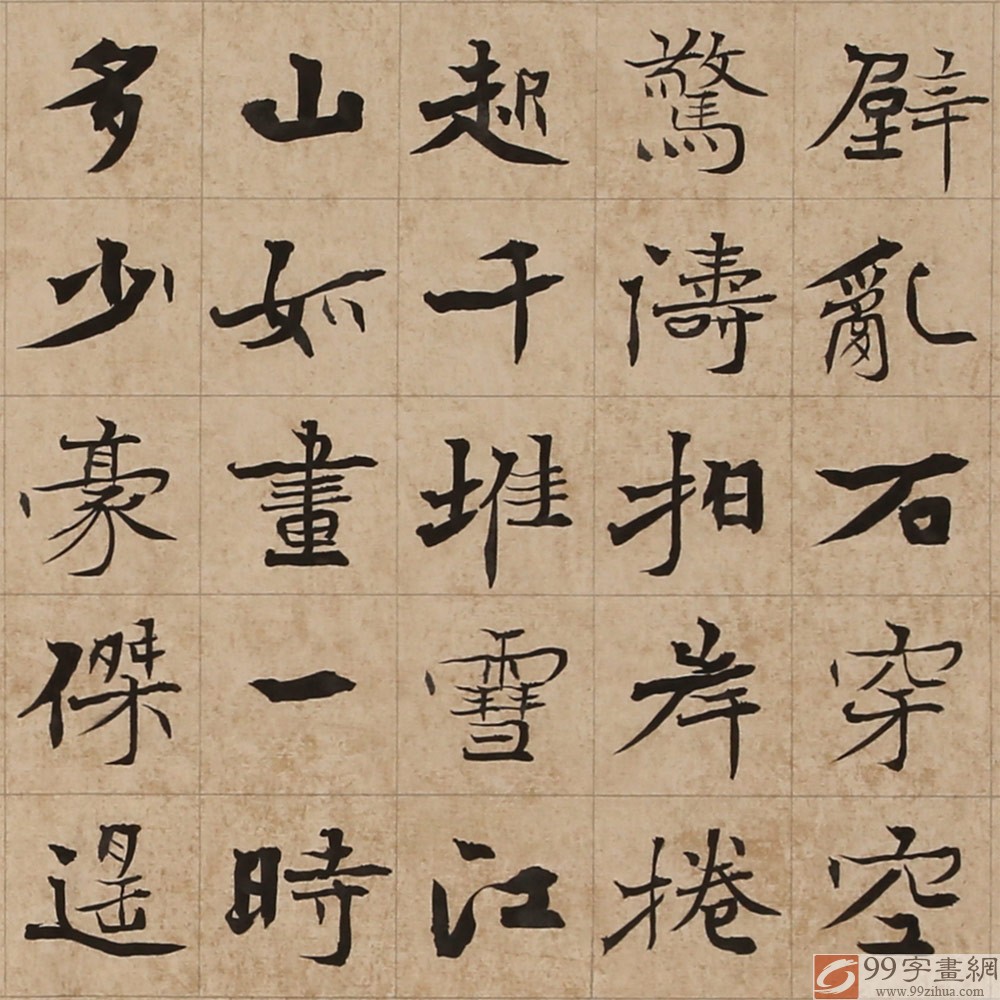 壁亂石穿空
驚濤拍岸捲
起千堆雪江
山如畫一時
多少豪傑遙
99字畫網
www.99zihua.com